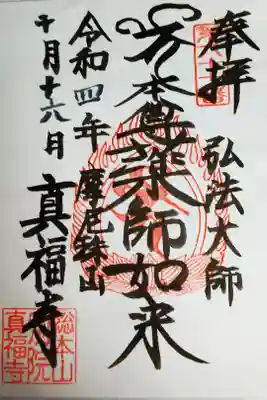 奉拝
弘法大師
本尊薬師如来
令和四年
摩尼珠山
十月十六日
真福寺
総本山
真福寺